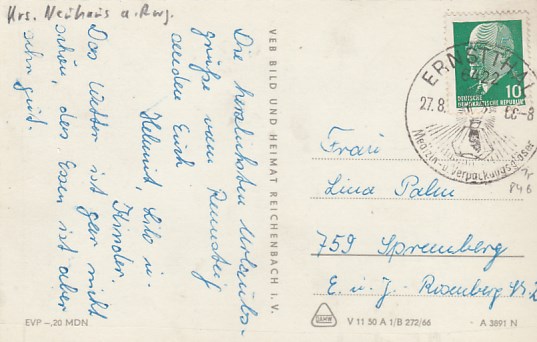 Krs. Neuhaus a. Rwg.
Die herzlichsten Urlaubs-
grüße vom Rennsteig
senden Euch
Helmut, Lilo u.
Kinder.
Das Wetter ist gar nicht
schön, das Essen ist aber
sehr gut.
VEB BILD UND HEIMAT REICHENBACH I. V.
ERNSTTHAL
6422
27.8.
-8
Medizin- u. Verpackungsgläser
DEUTSCHE
DEMOKRATISCHE REPUBLIK
10
846
Frau
Lina Palm
759 Spremberg
E. u. J. Rosenberg Str.
EVP –,20 MDN
V 11 50 A 1/B 272/66
A 3891 N